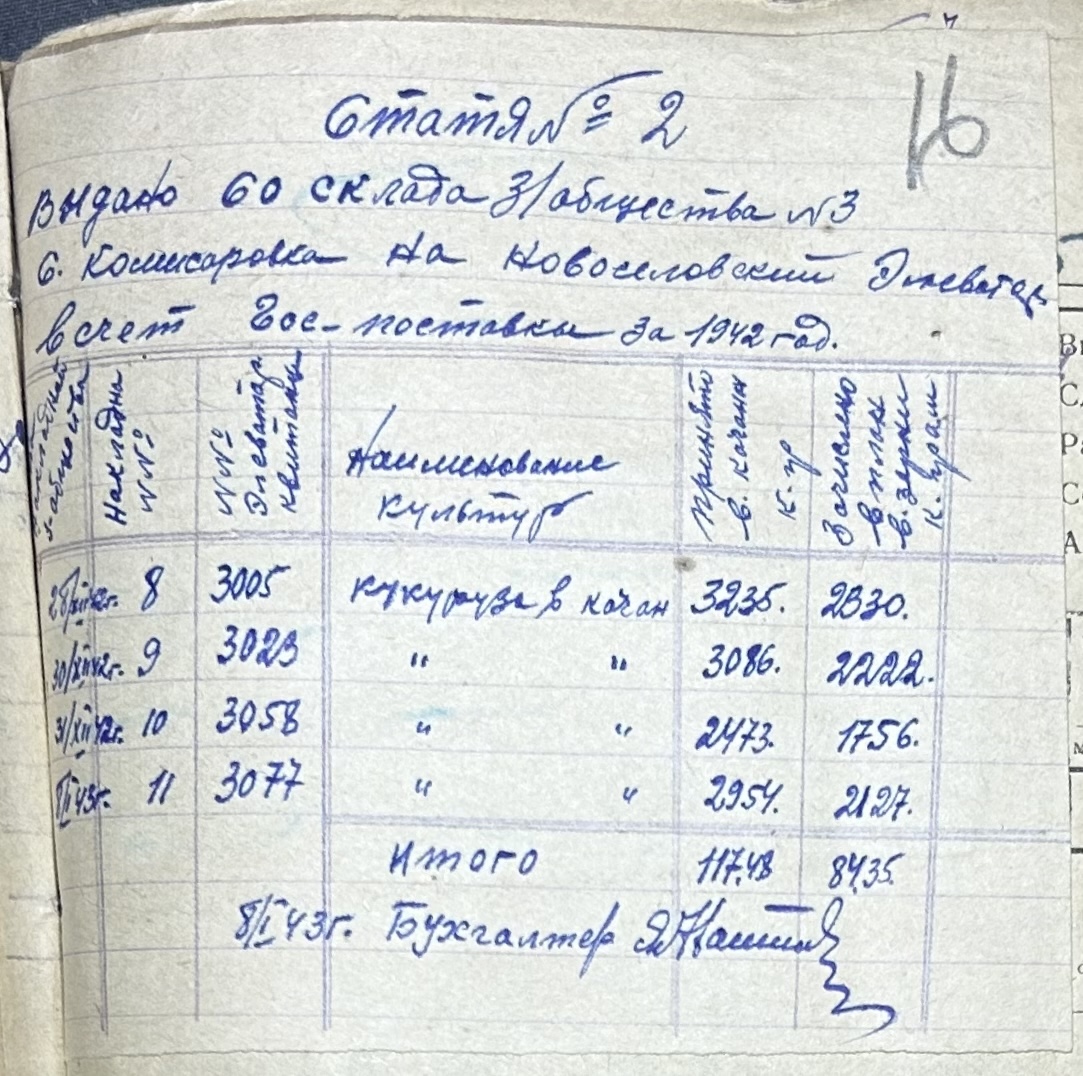 16
Статя № 2
Выдано Со склада З/общества №3
С. Комисаровка на Новоселовский Элеватор
в счет Гос-поставки за 1942 год.
Накладна №№
№№ Элеватор. квитанци
Наименование культур
принято в. качан к. гр
Зачислено в план в. зерни к. грам
28/XII 42г. 8 3005 кукуруза в качан 3235. 2330.
30/XII 42г. 9 3023 " " 3086. 2222.
31/XII 42г. 10 3058 " " 2473. 1756.
8/I 43г. 11 3077 " " 2954. 2127.
Итого 117.48 84.35.
8/I 43г. Бухгалтер